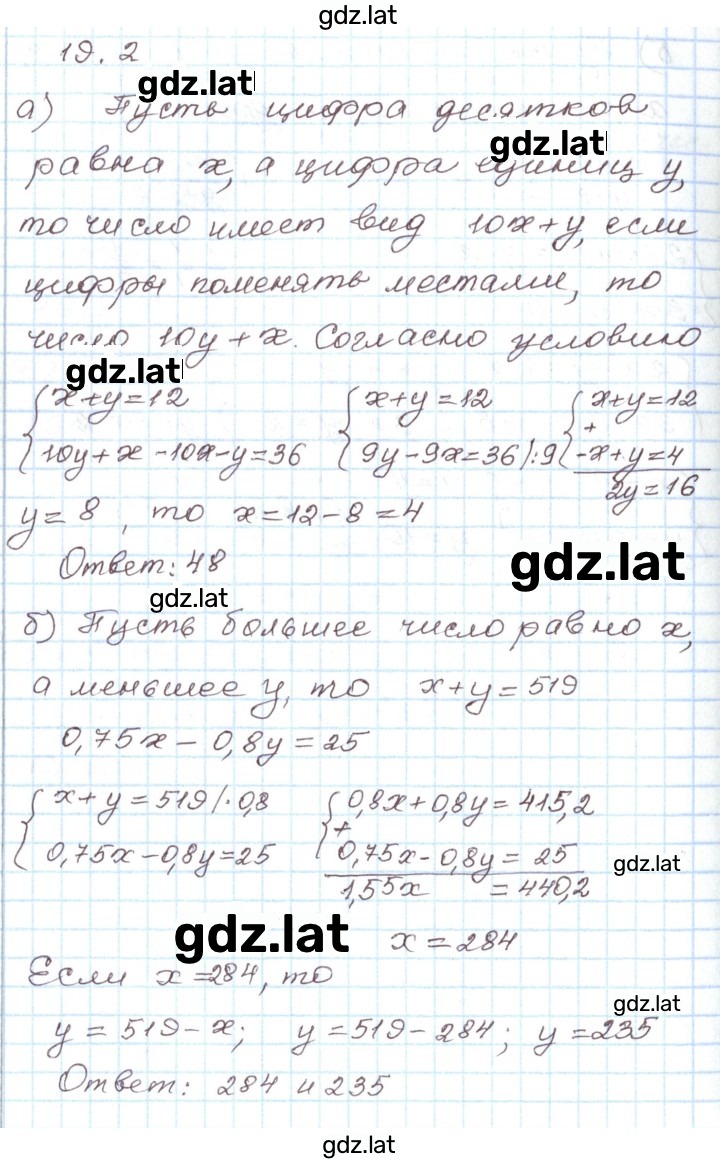 gdz.lat
19.2
gdz.lat
а) Пусть цифра десятков
gdz.lat
равна x, а цифра единиц y,
то число имеет вид 10x+y, если
цифры поменять местами, то
число 10y+x. Согласно условию
gdz.lat
{x+y=12 {x+y=12 {x+y=12
+
10y+x-10x-y=36 9y-9x=36/:9 -x+y=4
2y=16
y=8, то x=12-8=4
Ответ: 48
gdz.lat
gdz.lat
б) Пусть большее число равно x,
а меньшее y, то x+y=519
0,75x-0,8y=25
{x+y=519/·0,8 {0,8x+0,8y=415,2
+
0,75x-0,8y=25 0,75x-0,8y=25
gdz.lat
1,55x =440,2
gdz.lat x=284
Если x=284, то
gdz.lat
y=519-x; y=519-284; y=235
Ответ: 284 и 235
gdz.lat